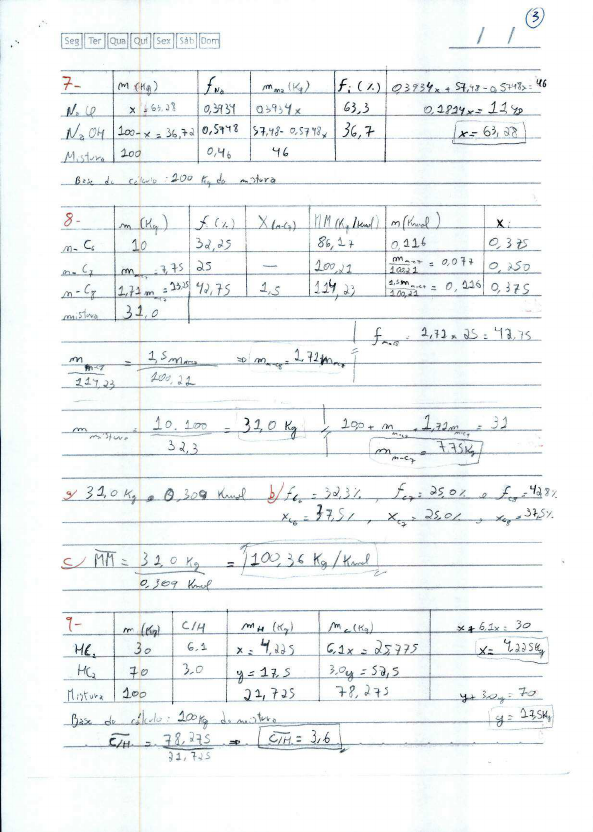 3
Seg Ter Qua Qui Sex Sáb Dom
/ /
7- m (Kg) f Na m Na (Kg) f i (%) 0,3934x + 57,48 - 0,5748x = 46
NaCl x = 63,28 0,3934 0,3934x 63,3 0,1814x = 11,48
NaOH 100-x = 36,72 0,5748 57,48 - 0,5748x 36,7 x = 63,28
Mistura 100 0,46 46
Base de cálculo: 100 Kg de mistura
8- m (Kg) f (%) X (n-C7) MM (Kg/Kmol) n (Kmol) x i
n-C6 10 32,25 86,17 0,116 0,375
n-C7 m = 7,75 25 — 100,21 = 0,077 0,250
n-C8 1,71 m = 13,25 42,75 1,5 114,23 = 0,116 0,375
mistura 31,0
f n-C8 = 1,71 x 25 = 42,75
m n-C8 / 114,23 = 1,5 m n-C7 / 100,21 ⇒ m n-C8 = 1,71 m n-C7
m mistura = 10.100 / 32,3 = 31,0 Kg // 10,0 + m n-C7 + 1,71 m n-C7 = 31
m n-C7 = 7,75 Kg
a) 31,0 Kg e 0,309 Kmol b) f C6 = 32,3% , f C7 = 25,0% e f C8 = 42,8%
x C6 = 37,5% , x C7 = 25,0% , x C8 = 37,5%
c) MM = 31,0 Kg / 0,309 Kmol = 100,36 Kg/Kmol
9- m (Kg) C/H m H (Kg) m C (Kg) x + 6,1x = 30
HC1 30 6,1 x = 4,225 6,1x = 25,775 x = 4,225 Kg
HC2 70 3,0 y = 17,5 3,0y = 52,5
Mistura 100 21,725 78,275 y + 3,0y = 70
Base de cálculo: 100 Kg de mistura y = 17,5 Kg
C/H = 78,275 / 21,725 ⇒ C/H = 3,6